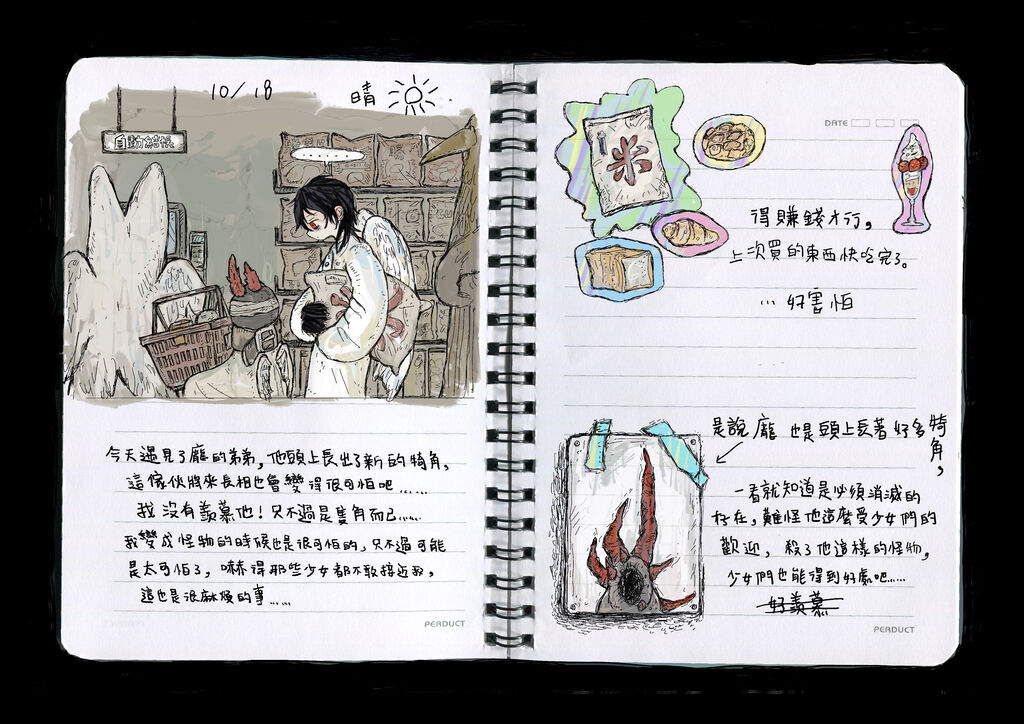 10/18 晴
自動結帳
......
今天遇見了龐的弟弟，他頭上長出了新的犄角，
這傢伙將來長相也會變得很可怕吧......
我沒有羨慕他！只不過是隻角而已......
我變成怪物的時候也是很可怕的，只不過可能
是太可怕了，嚇得那些少女都不敢接近我，
這也是很麻煩的事......
PERDUCT
DATE
米
得賺錢才行，
上次買的東西快吃完了。
...好害怕
是說龐也是頭上長著好多犄角，
一看就知道是必須消滅的
存在，難怪他這麼受少女們的
歡迎，殺了他這樣的怪物，
少女們也能得到好處吧......
好羨慕
PERDUCT